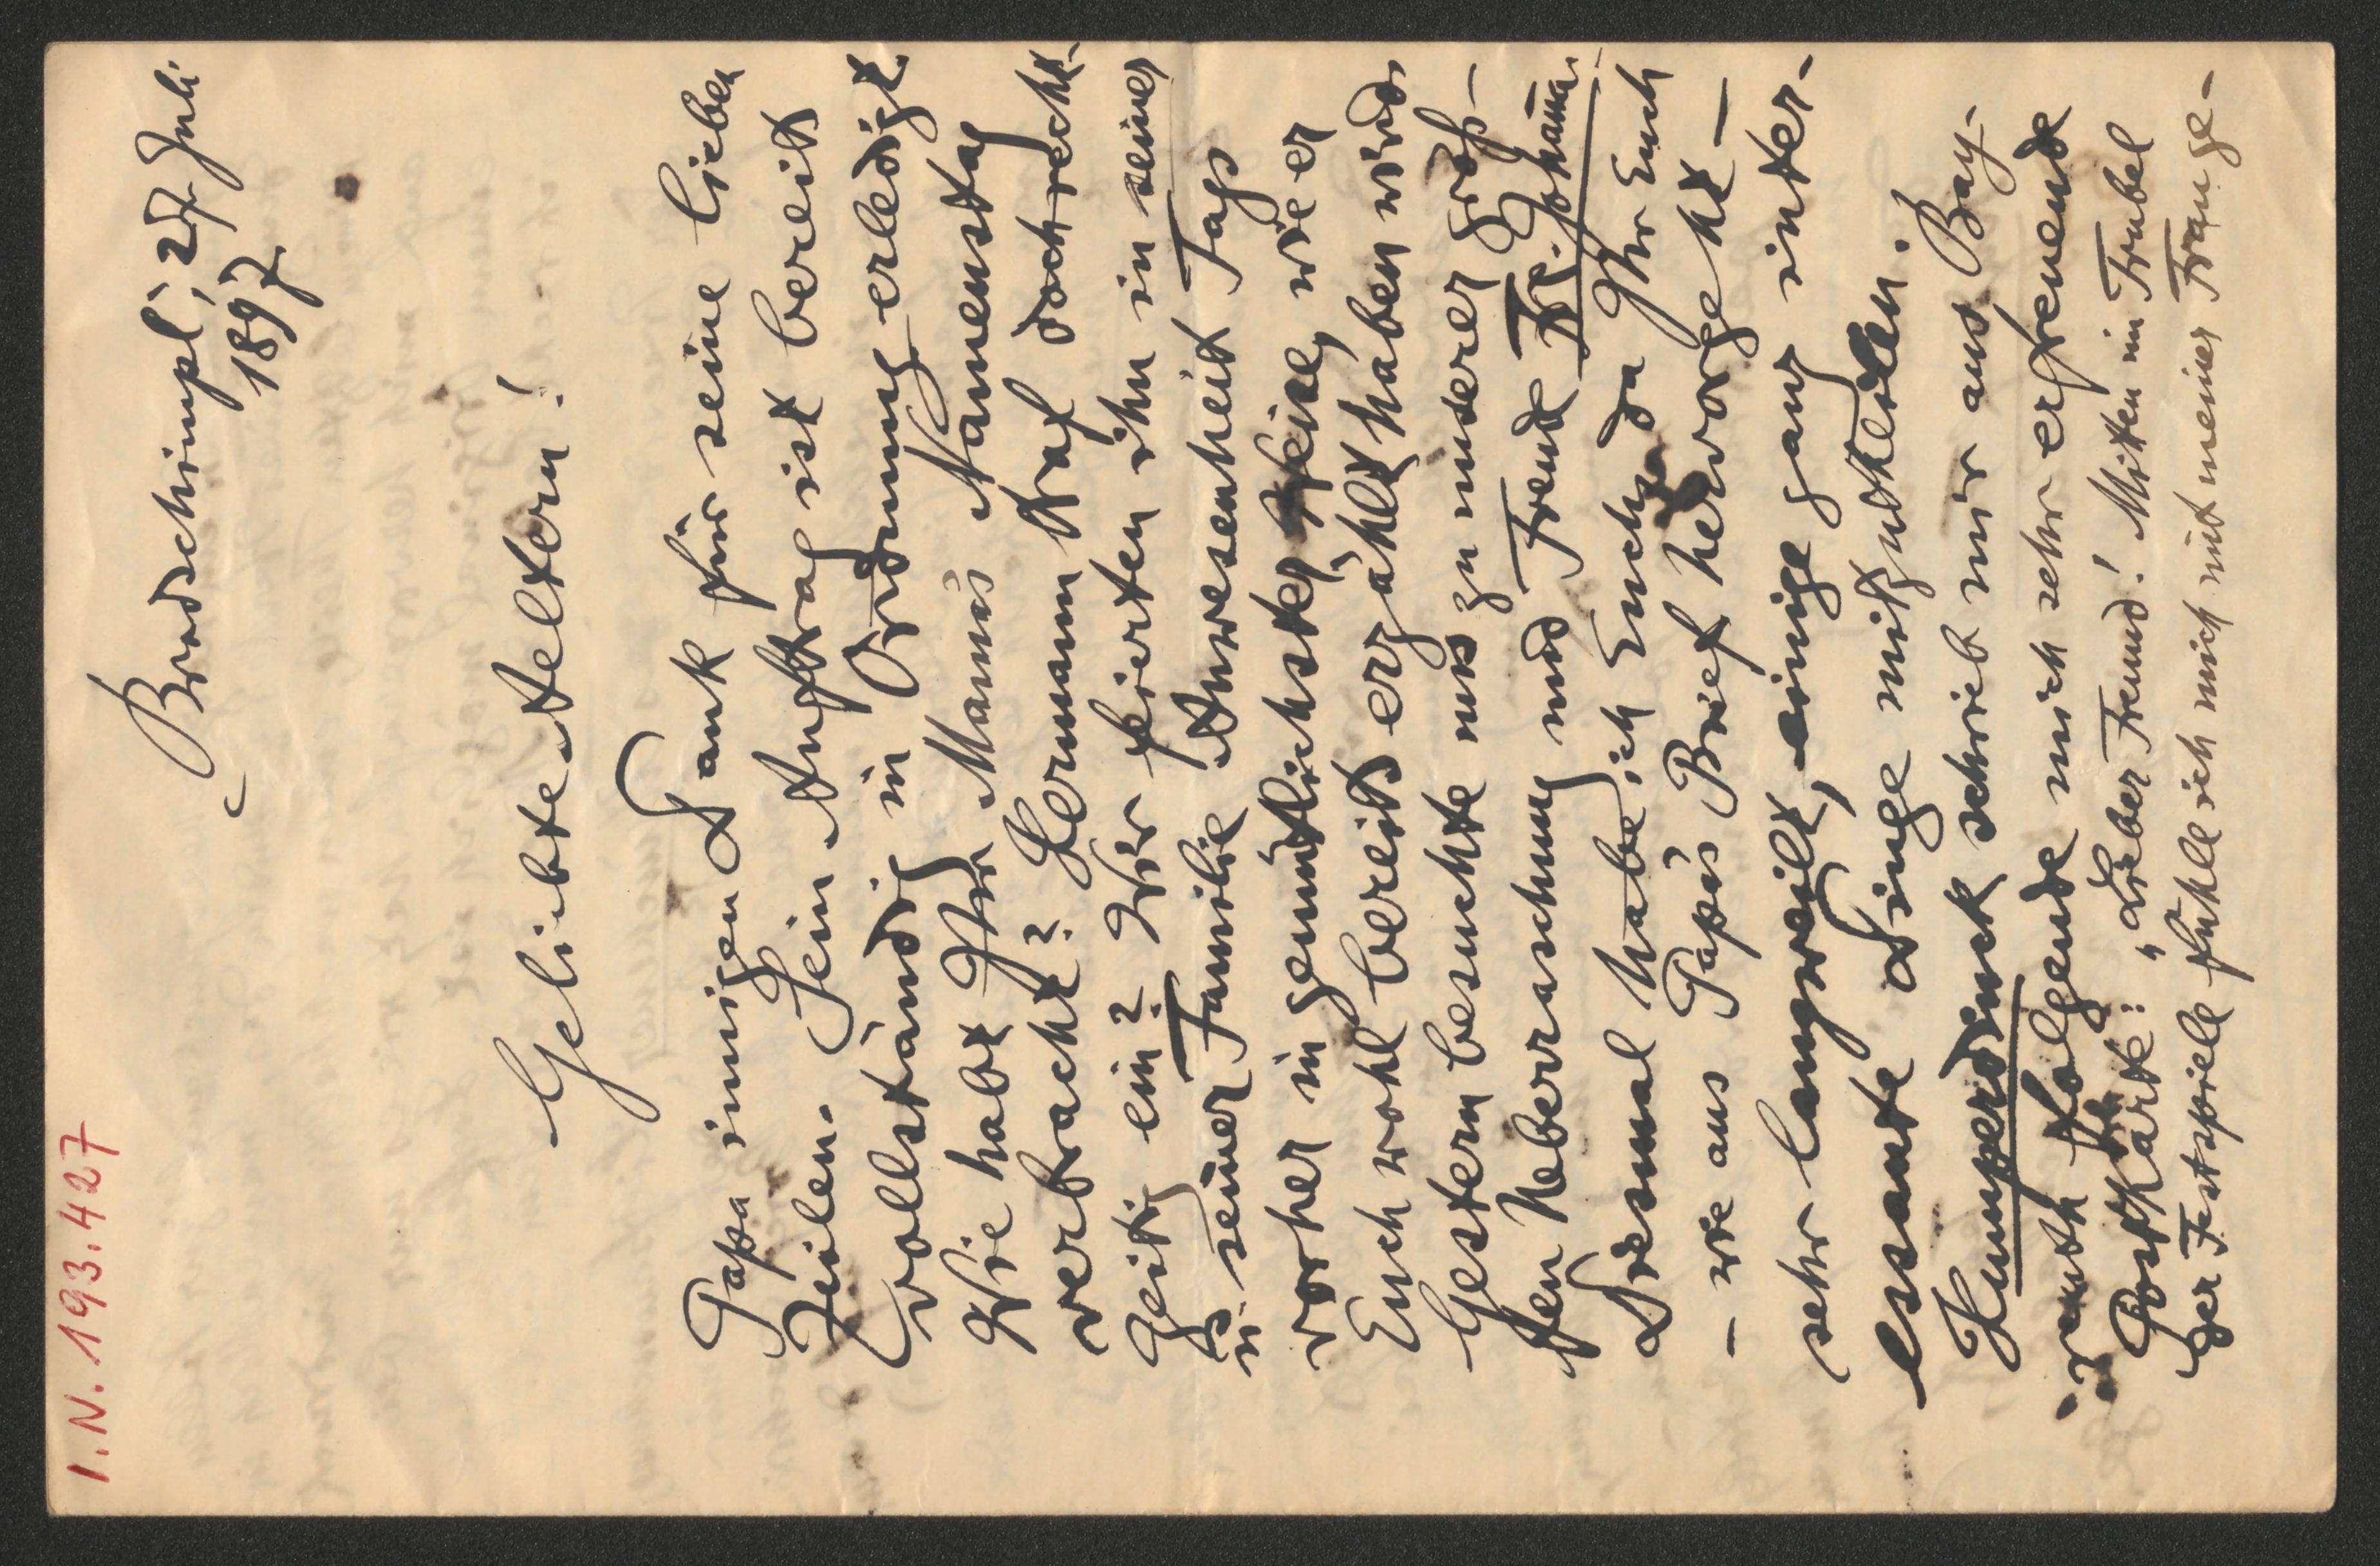 I.N. 193.427
Brodschimpl, 27. Juli
1897.
Geliebte Aeltern!
Papa innigen Dank für seine lieben
Zeilen. Sein Auftrag ist bereits
vollständig in Ordnung erledigt.
Wie habt Ihr Mama's Namenstag
verbracht? Hermann traf doch recht-
zeitig ein? Wir feierten ihn in seiner
u. seiner Familie Anwesenheit Tags
vorher in gemüthlichster Weise, wie er
Euch wohl bereits erzählt haben wird.
Gestern besuchte uns zu unserer gröss-
ten Ueberraschung und Freude Frl. Johanna.
Diesmal habe ich Euch, da Ihr Euch
– wie aus Papa's Brief hervorgeht –
sehr langweilt, einige ganz inter-
essante Dinge mitzutheilen.
Humperdinck schrieb mir aus Bay-
reuth folgende mich sehr erfreuende
Postkarte: „Lieber Freund! Mitten im Trubel
der Festspiele fühle ich mich mit meiner Frau ge-